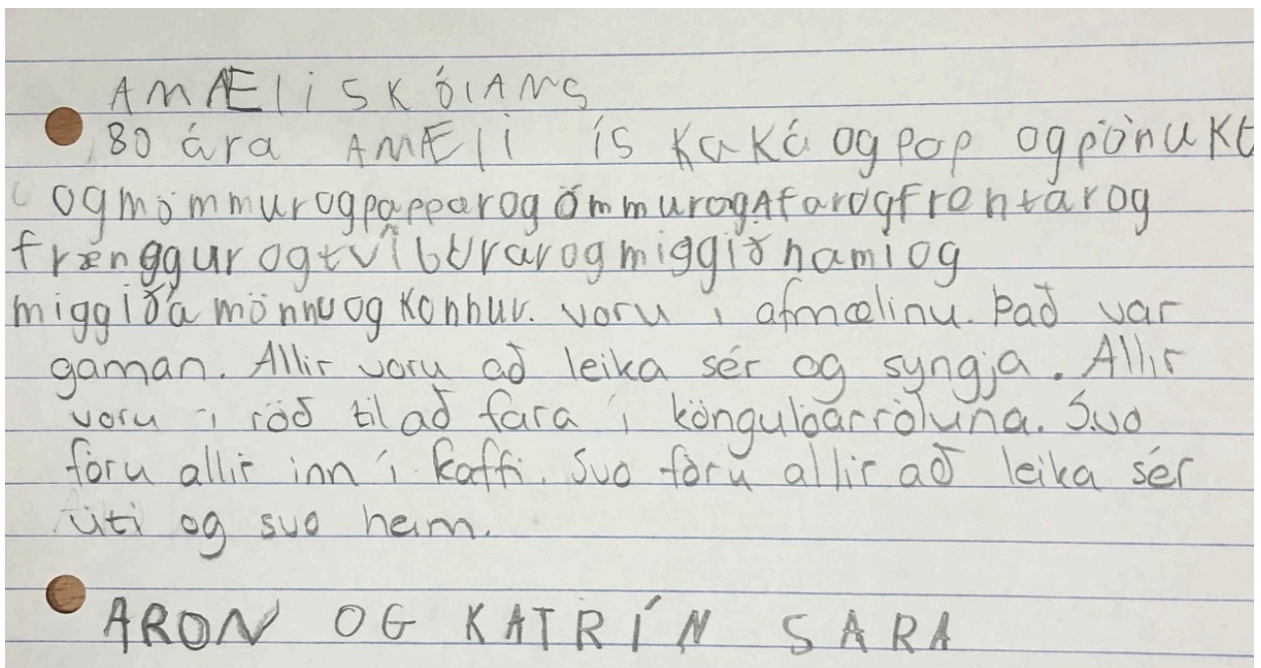 AMÆLiSKÓLANS
80 ára AMÆli ís KaKá og pop og pönukt
ogmömmurogpapparogömmurogAfarogfrentarog
frænggurogtvíburarogmiggiðnamiog
miggiðámönnuogKonnur. voru í afmælinu. Það var
gaman. Allir voru að leika sér og syngja. Allir
voru í röð til að fara í köngulóarróluna. Svo
fóru allir inn í kaffi. Svo fóru allir að leika sér
úti og svo heim.
ARON OG KATRÍN SARA